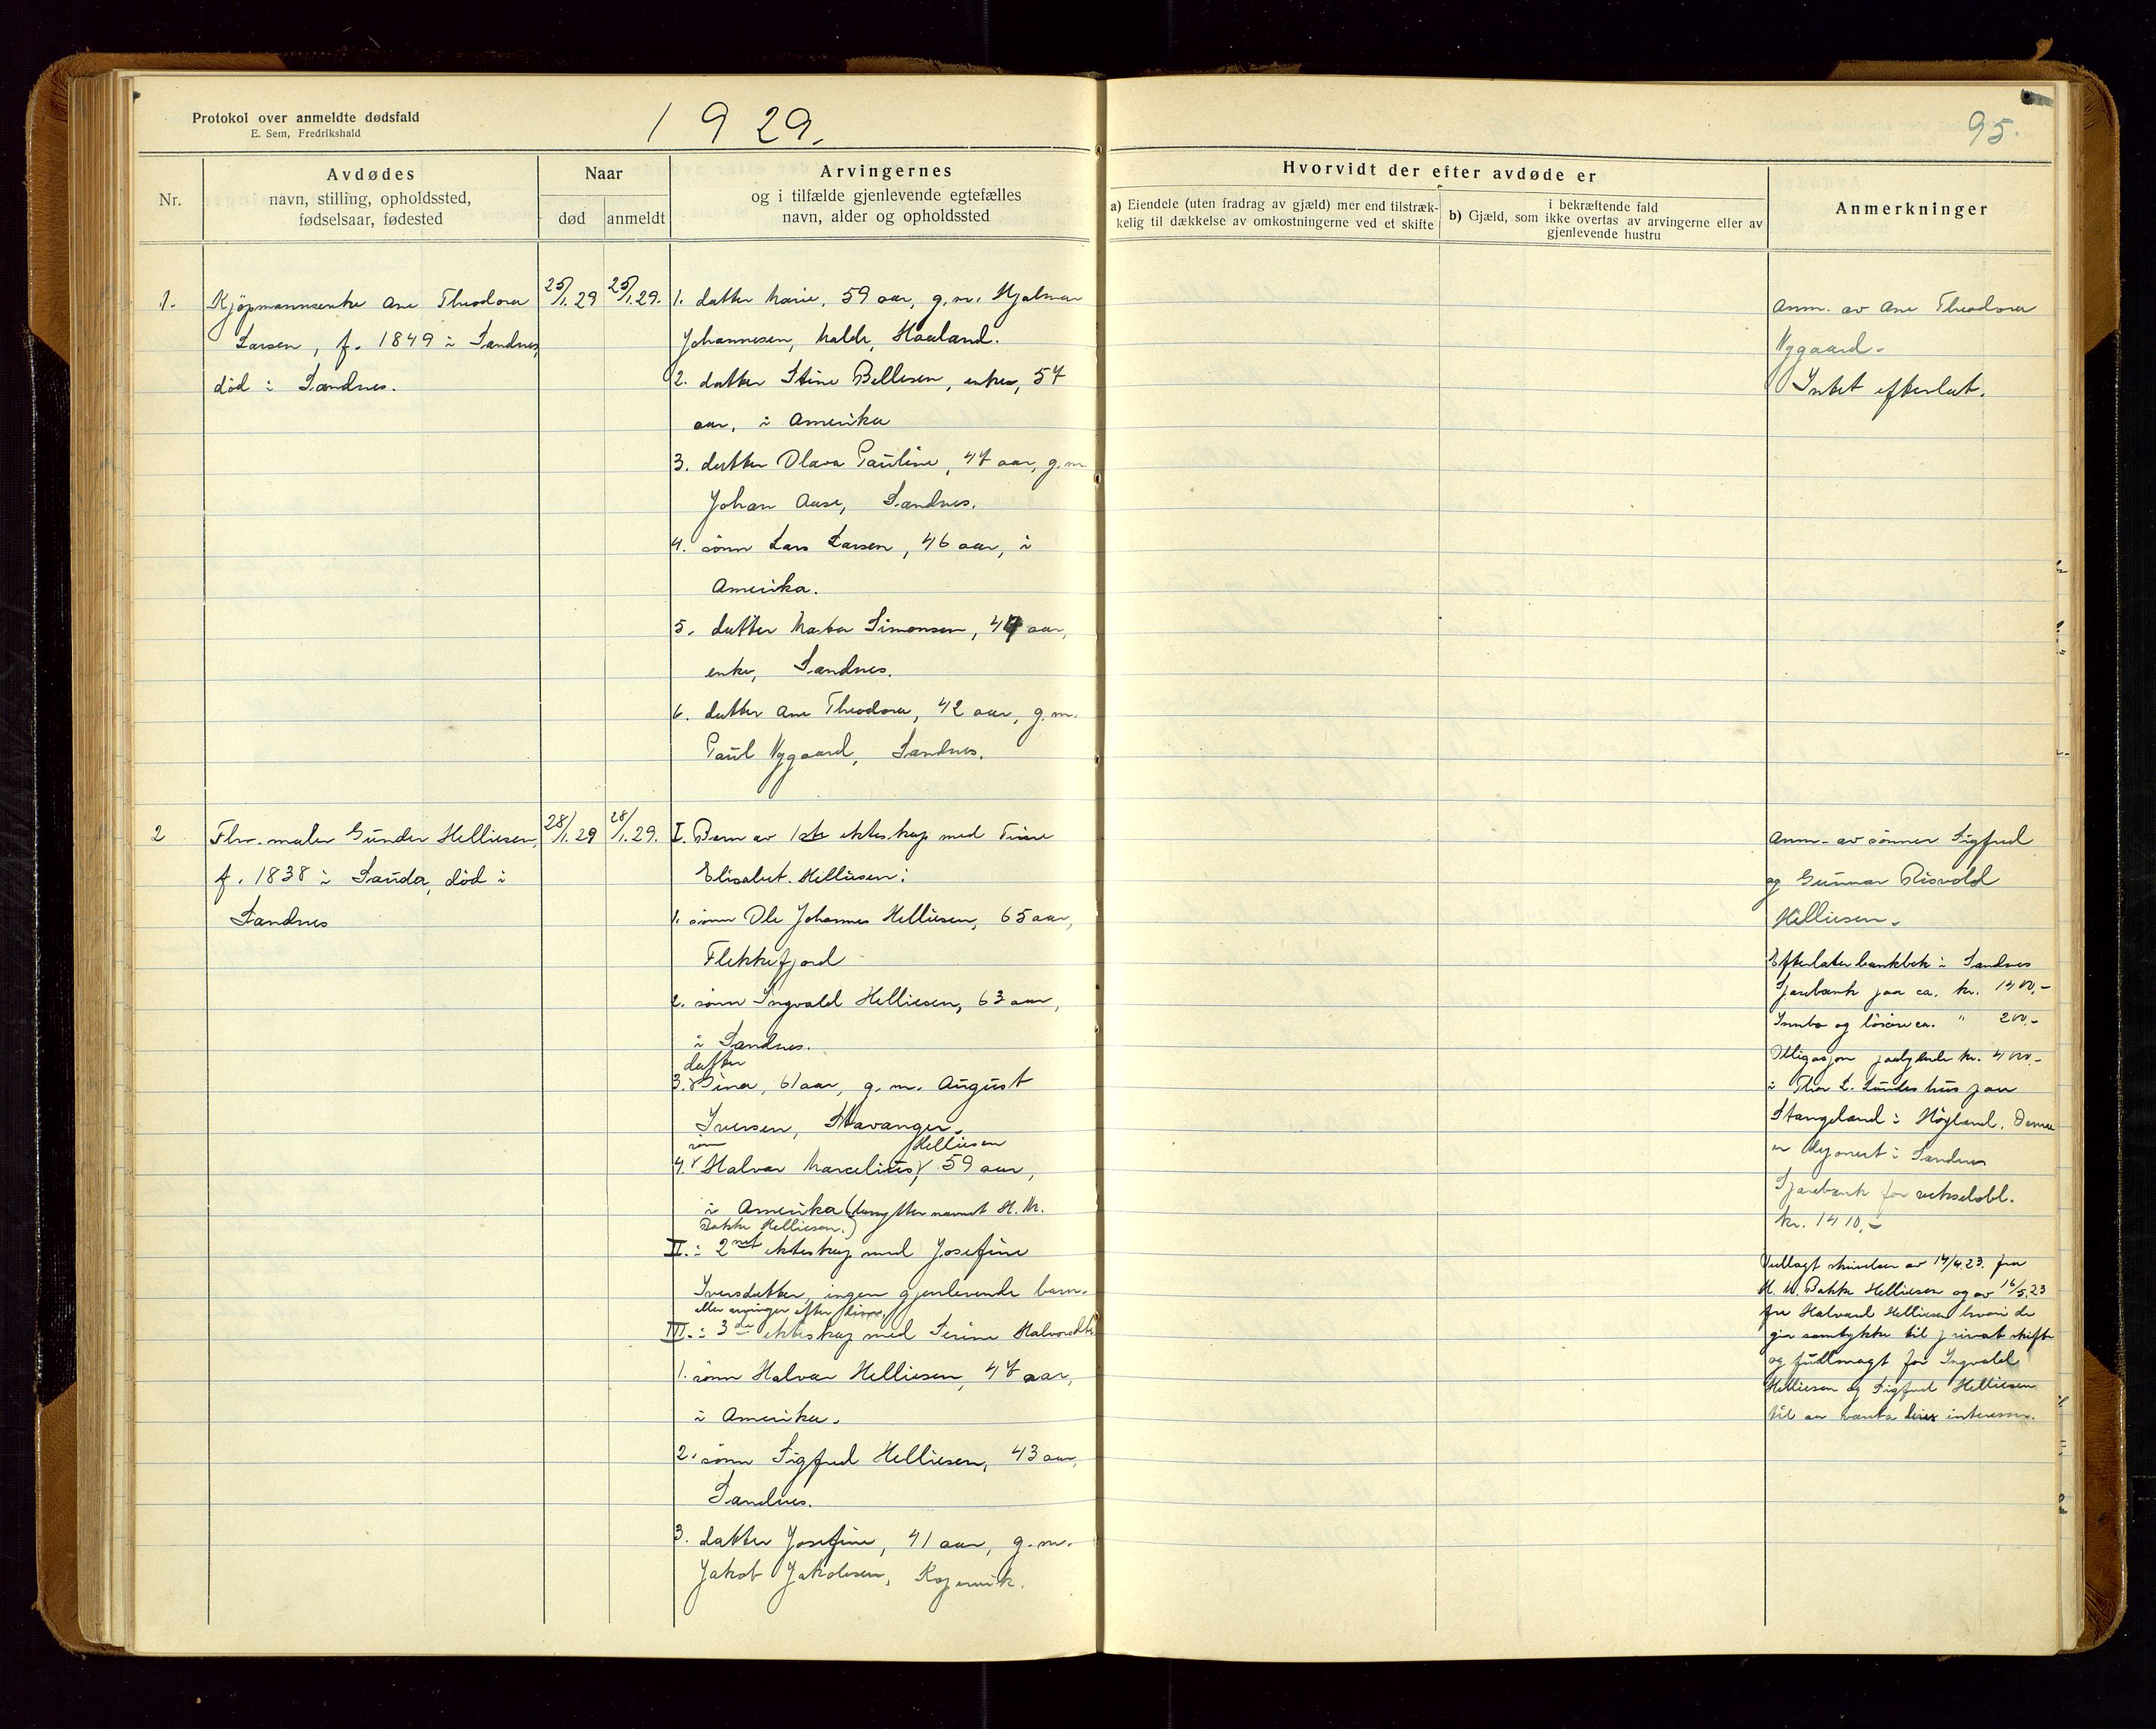 Protokol over anmeldte dødsfald
E. Sem, Fredrikshald
1929.
95.
Nr.
Avdødes
navn, stilling, opholdssted,
fødselsaar, fødested
Naar
død
anmeldt
Arvingernes
og i tilfælde gjenlevende egtefælles
navn, alder og opholdssted
Hvorvidt der efter avdøde er
a) Eiendele (uten fradrag av gjæld) mer end tilstræk-
kelig til dækkelse av omkostningerne ved et skifte
i bekræftende fald
b) Gjæld, som ikke overtas av arvingerne eller av
gjenlevende hustru
Anmerkninger
1.
Kjøpmannsenke Ane Theodora
Larsen, f. 1849 i Sandnes,
død i Sandnes.
25/1.29
25/1.29.
1. datter Marie, 59 aar, g.m. Hjalmar
Johannesen, Malde, Haaland.
2. datter Stine Bellesen, enke, 57
aar, i Amerika
3. datter Olava Pauline, 47 aar, g.m.
Johan Aase, Sandnes.
4. sønn Lars Larsen, 46 aar, i
Amerika.
5. datter Marta Simonsen, 44 aar,
enke, Sandnes.
6. datter Ane Theodora, 42 aar, g.m.
Paul Nygaard, Sandnes.
Anm. av Ane Theodora
Nygaard.
Intet efterlat.
2
Fhv. maler Gunder Helliesen,
f. 1838 i Sauda, død i
Sandnes
28/1.29
28/1.29.
I. Barn av 1ste ekteskap med Trine
Elisabet Helliesen:
1. sønn Ole Johannes Helliesen, 65 aar,
Flekkefjord
2. sønn Ingvald Helliesen, 63 aar,
i Sandnes.
datter
3. Gina, 61 aar, g.m. August
Iversen, Stavanger.
sønn Helliesen
4. Halvar Marcelius, 59 aar,
i Amerika (benytter navnet H.M.
Bakke Helliesen.)
II. i 2net ekteskap med Josefine
Iversdatter, ingen gjenlevende barn.
eller arvinger efter disse.
III. i 3de ekteskap med Serine Halvorsdtr.
1. sønn Halvar Helliesen, 47 aar,
i Amerika.
2. sønn Sigfred Helliesen, 43 aar,
Sandnes.
3. datter Josefine, 41 aar, g.m.
Jakob Jakobsen, Kopervik.
Anm. av sønner Sigfred
og Gunnar Risvold
Helliesen.
Efterlater bankbok i Sandnes
Sparebank paa ca. kr. 1400,-
Innbo og løsøre ca. " 200.-
Obligasjon paalydende kr. 4000.-
i Thor L. Lundes hus paa
Stangeland i Høyland. Denne
er deponert i Sandnes
Sparebank for vekselobl.
kr. 1410,-
Vedlagt skrivelse av 14/4.23. fra
H. M. Bakke Helliesen og av 16/5.23
fra Halvard Helliesen hvori de
gir samtykke til privat skifte
og fullmagt for Ingvald
Helliesen og Sigfred Helliesen
til aa vareta deres interesser.